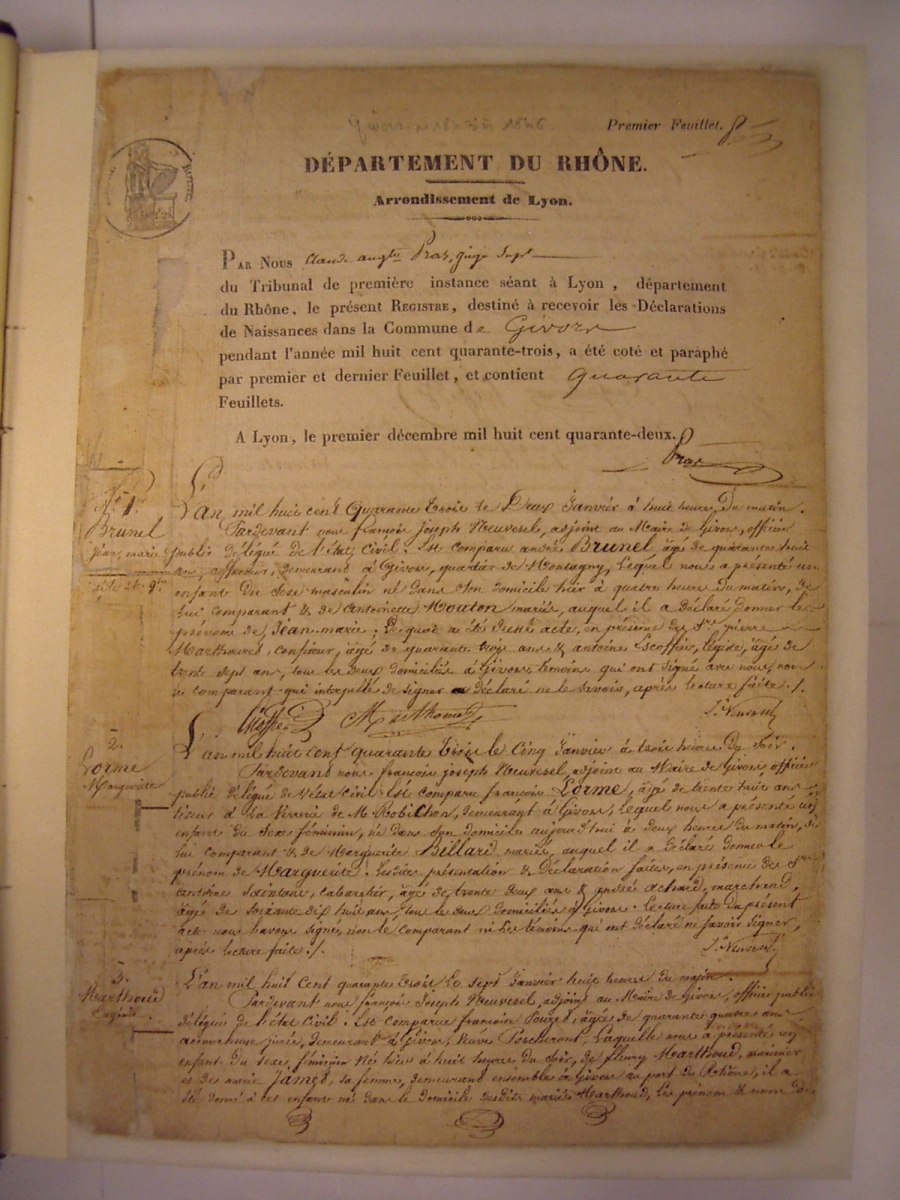 Premier Feuillet.
DÉPARTEMENT DU RHÔNE.
Arrondissement de Lyon.
PAR NOUS Claude augte Pras, juge Supt
du Tribunal de première instance séant à Lyon, département
du Rhône, le présent REGISTRE, destiné à recevoir les Déclarations
de Naissances dans la Commune de Givors
pendant l'année mil huit cent quarante-trois, a été coté et paraphé
par premier et dernier Feuillet, et contient quarante
Feuillets.
A Lyon, le premier décembre mil huit cent quarante-deux.
Pras
N° 1.
Brunel
Jean marie
L'an mil huit cent quarante trois le Deux Janvier à huit heures Du matin.
Pardevant nous françois Joseph Neuvesel, adjoint au Maire de Givors, officier
public délégué de l'état Civil. Est comparu andré Brunel, âgé de quarante huit
ans, demeurant à Givors, quartier de Montagny, lequel nous a présenté un
enfant du Sexe masculin né dans son domicile hier à quatre heures du matin, de
lui comparant & de antoinette Mouton mariés, auquel il a déclaré donner les
prénoms de Jean-marie. De quoi a été dressé acte, en présence des srs pierre
Marthoures, confiseur, âgé de quarante trois ans & antoine Escoffier, âgé de
trente sept ans, tous les deux domiciliés à Givors, témoins qui ont signé avec nous, non
le comparant qui interpellé de signer a déclaré ne le savoir, après lecture faite ./.
2.
Lorme
Marguerite
L'an mil huit cent quarante trois le Cinq Janvier à trois heures Du Soir.
Pardevant nous françois joseph Neuvesel, adjoint au Maire de Givors, officier
public délégué de l'état Civil. Est comparu françois Lorme, âgé de trente huit ans
tiseur à la Verrerie de M. Robichon, demeurant à Givors, lequel nous a présenté un
enfant du Sexe féminin, né dans son domicile aujourd'hui à deux heures du matin, de
lui comparant & de Marguerite Billard mariés, auquel il a déclaré donner le
prénom de Marguerite. Lesdites présentation & Déclaration faites, en présence des srs
antoine Saintour, Cabaretier, âgé de trente deux ans & andré achard, marchand,
âgé de soixante dix huit ans, tous les deux domiciliés à Givors. Lecture faite du présent
acte nous l'avons signé, non le comparant ni les témoins qui ont déclaré ne savoir signer,
après lecture faite ./.
3.
Marthoud
Eugénie
L'an mil huit cent quarante trois le sept Janvier huit heures du matin.
Pardevant nous françois Joseph Neuvesel, adjoint au Maire de Givors, officier public
délégué de l'état Civil. Est comparue françoise âgée de quarante quatre ans
accoucheuse jurée, demeurant à Givors, Veuve Laquelle nous a présenté un
enfant Du sexe féminin né hier à huit heures Du Soir, de fleury Marthoud, marinier
et de marie Jamet, sa femme, demeurant ensemble à Givors au port du Rhône, il a
été donné à cet enfant né dans le domicile desdits mariés Marthoud, les prénom & nom de